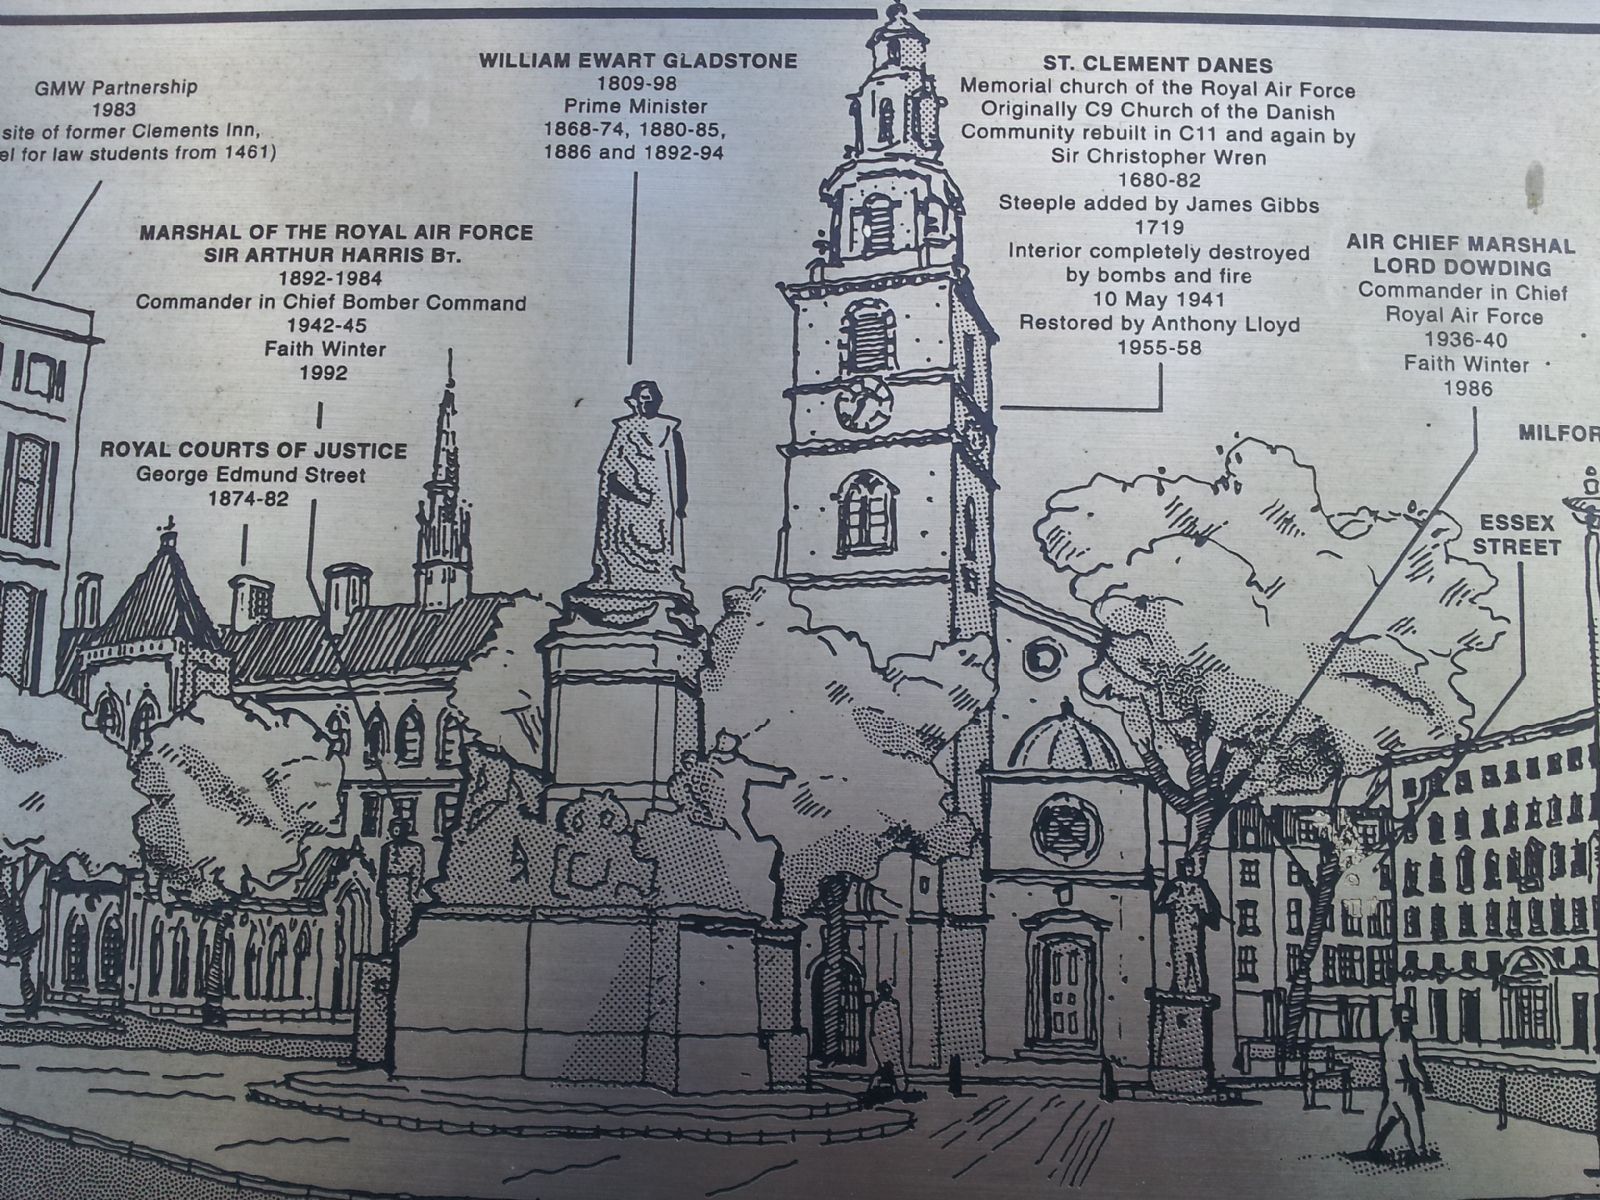 GMW Partnership
1983
site of former Clements Inn,
for law students from 1461)
MARSHAL OF THE ROYAL AIR FORCE
SIR ARTHUR HARRIS BT.
1892-1984
Commander in Chief Bomber Command
1942-45
Faith Winter
1992
ROYAL COURTS OF JUSTICE
George Edmund Street
1874-82
WILLIAM EWART GLADSTONE
1809-98
Prime Minister
1868-74, 1880-85,
1886 and 1892-94
ST. CLEMENT DANES
Memorial church of the Royal Air Force
Originally C9 Church of the Danish
Community rebuilt in C11 and again by
Sir Christopher Wren
1680-82
Steeple added by James Gibbs
1719
Interior completely destroyed
by bombs and fire
10 May 1941
Restored by Anthony Lloyd
1955-58
AIR CHIEF MARSHAL
LORD DOWDING
Commander in Chief
Royal Air Force
1936-40
Faith Winter
1986
MILFOR
ESSEX
STREET